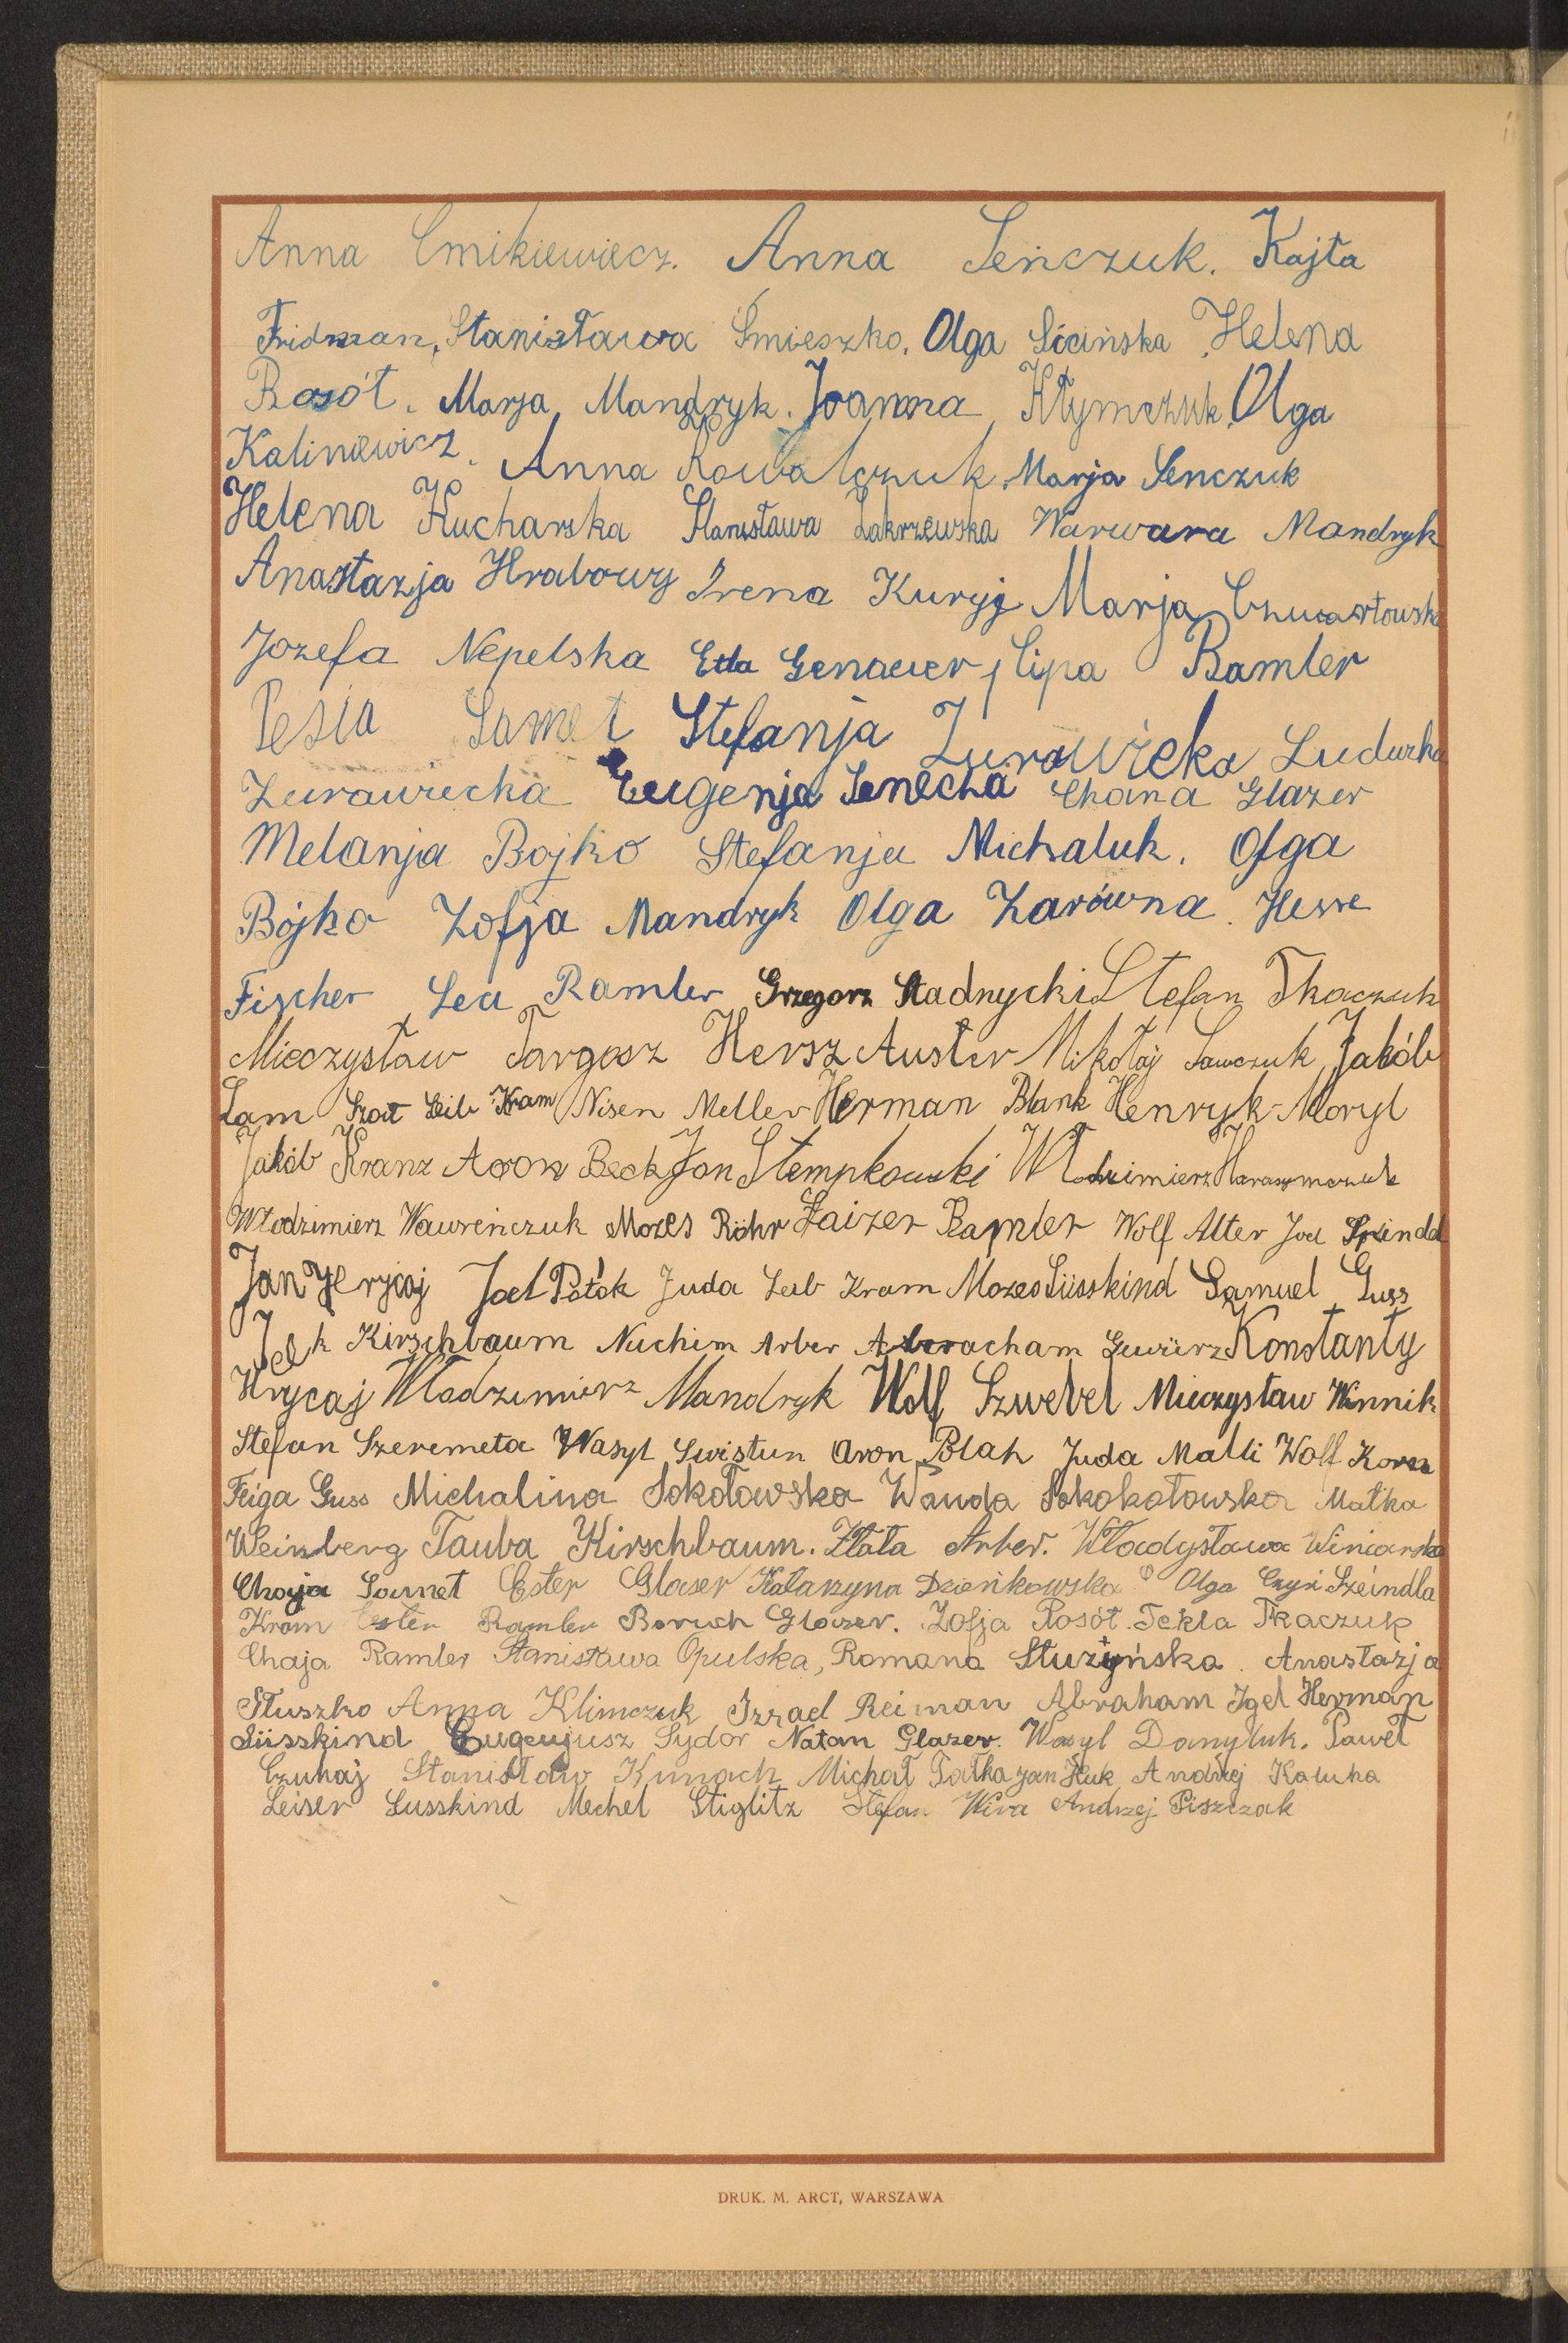 Anna Cmikiewiecz. Anna Seńczuk. Kajta
Fridman, Stanisława Śmieszko. Olga Sicińska Helena
Rosół. Marja Mandryk. Joanna Kłymczuk Olga
Kaliniewicz. Anna Kowalczuk. Marja Senczuk
Helena Kucharska Stanisława Zakrzewska Warwara Mandryk
Anastazja Hrabowy Irena Kuryj Marja Czwartowska
Jozefa Nepelska Etla Genauer, Lipa Ramler
Pesia Samet Stefanja Żurawiecka Ludwika
Zurawiecka Eugenja Senecka Chana Glazer
Melanja Bojko Stefanja Michaluk. Olga
Bójko Zofja Mandryk Olga Zarówna. Hesse
Fischer Lea Ramler Grzegorz Stadnycki Stefan Tkaczuk
Mieczysław Targosz Hersz Auster Mikołaj Sawczuk Jakób
Lam Leib Kram Nisen Meller Herman Blank Henryk Moryl
Jakób Kranz Aron Beck Jan Stempkowski Włodzimierz Harasymczuk
Włodzimierz Wawreńczuk Mozes Röhr Laizer Ramler Wolf Alter Joel Spindel
Jan Hrycaj Joel Potok Juda Leib Kram Mozes Süsskind Samuel Guss
Icek Kirschbaum Nuchim Arber Abracham Gewürz Konstanty
Hrycaj Włodzimierz Mandryk Wolf Szwebel Mieczysław Winnik
Stefan Szeremeta Wasyl Swistun Aron Blah Juda Malli Wolf Korn
Feiga Guss Michalina Sokołowska Wanda Sokokołowska Małka
Weinberg Tauba Kirschbaum. Złata Arber. Władysława Winiarska
Chaja Samet Ester Glaser Katarzyna Dzieńkowska Olga Czyż Szeindla
Kram Ester Ramler Boruch Glazer. Zofja Rosół. Tekla Tkaczuk
Chaja Ramler Stanisława Opulska, Romana Służyńska. Anastazja
Słuszko Anna Klimczuk Izrael Reiman Abraham Igel Herman
Süsskind Eugenjusz Sydor Natan Glazer. Wasyl Danyluk. Paweł
Czuhaj Stanisław Kunach Michał Fałka Jan Huk Andrzej Kaluha
Leiser Susskind Mechel Stiglitz Stefan Wiwa Andrzej Piszczak
DRUK. M. ARCT, WARSZAWA